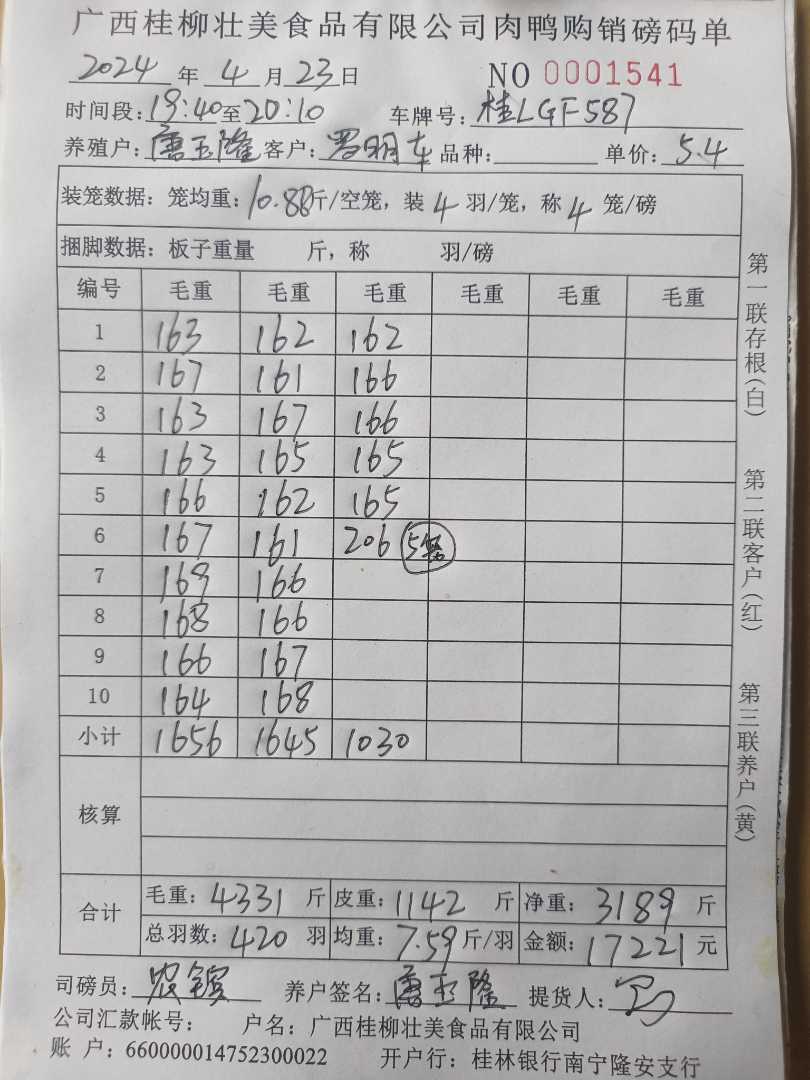 广西桂柳壮美食品有限公司肉鸭购销磅码单
2024 年 4 月 23 日 NO 0001541
时间段: 19:40 至 20:10 车牌号: 桂LGF587
养殖户: 唐玉隆 客户: 罗明车 品种: 单价: 5.4
装笼数据: 笼均重: 10.88 斤/空笼, 装 4 羽/笼, 称 4 笼/磅
捆脚数据: 板子重量 斤, 称 羽/磅
编号 毛重 毛重 毛重 毛重 毛重 毛重
1 163 162 162
2 167 161 166
3 163 167 166
4 163 165 165
5 166 162 165
6 167 161 206 5笼
7 169 166
8 168 166
9 166 167
10 164 168
小计 1656 1645 1030
核算
合计
毛重: 4331 斤 皮重: 1142 斤 净重: 3189 斤
总羽数: 420 羽 均重: 7.59 斤/羽 金额: 17221 元
司磅员: 农 养户签名: 唐玉隆 提货人:
公司汇款帐号: 户名: 广西桂柳壮美食品有限公司
账 户: 660000014752300022 开户行: 桂林银行南宁隆安支行
第一联存根(白)
第二联客户(红)
第三联养户(黄)